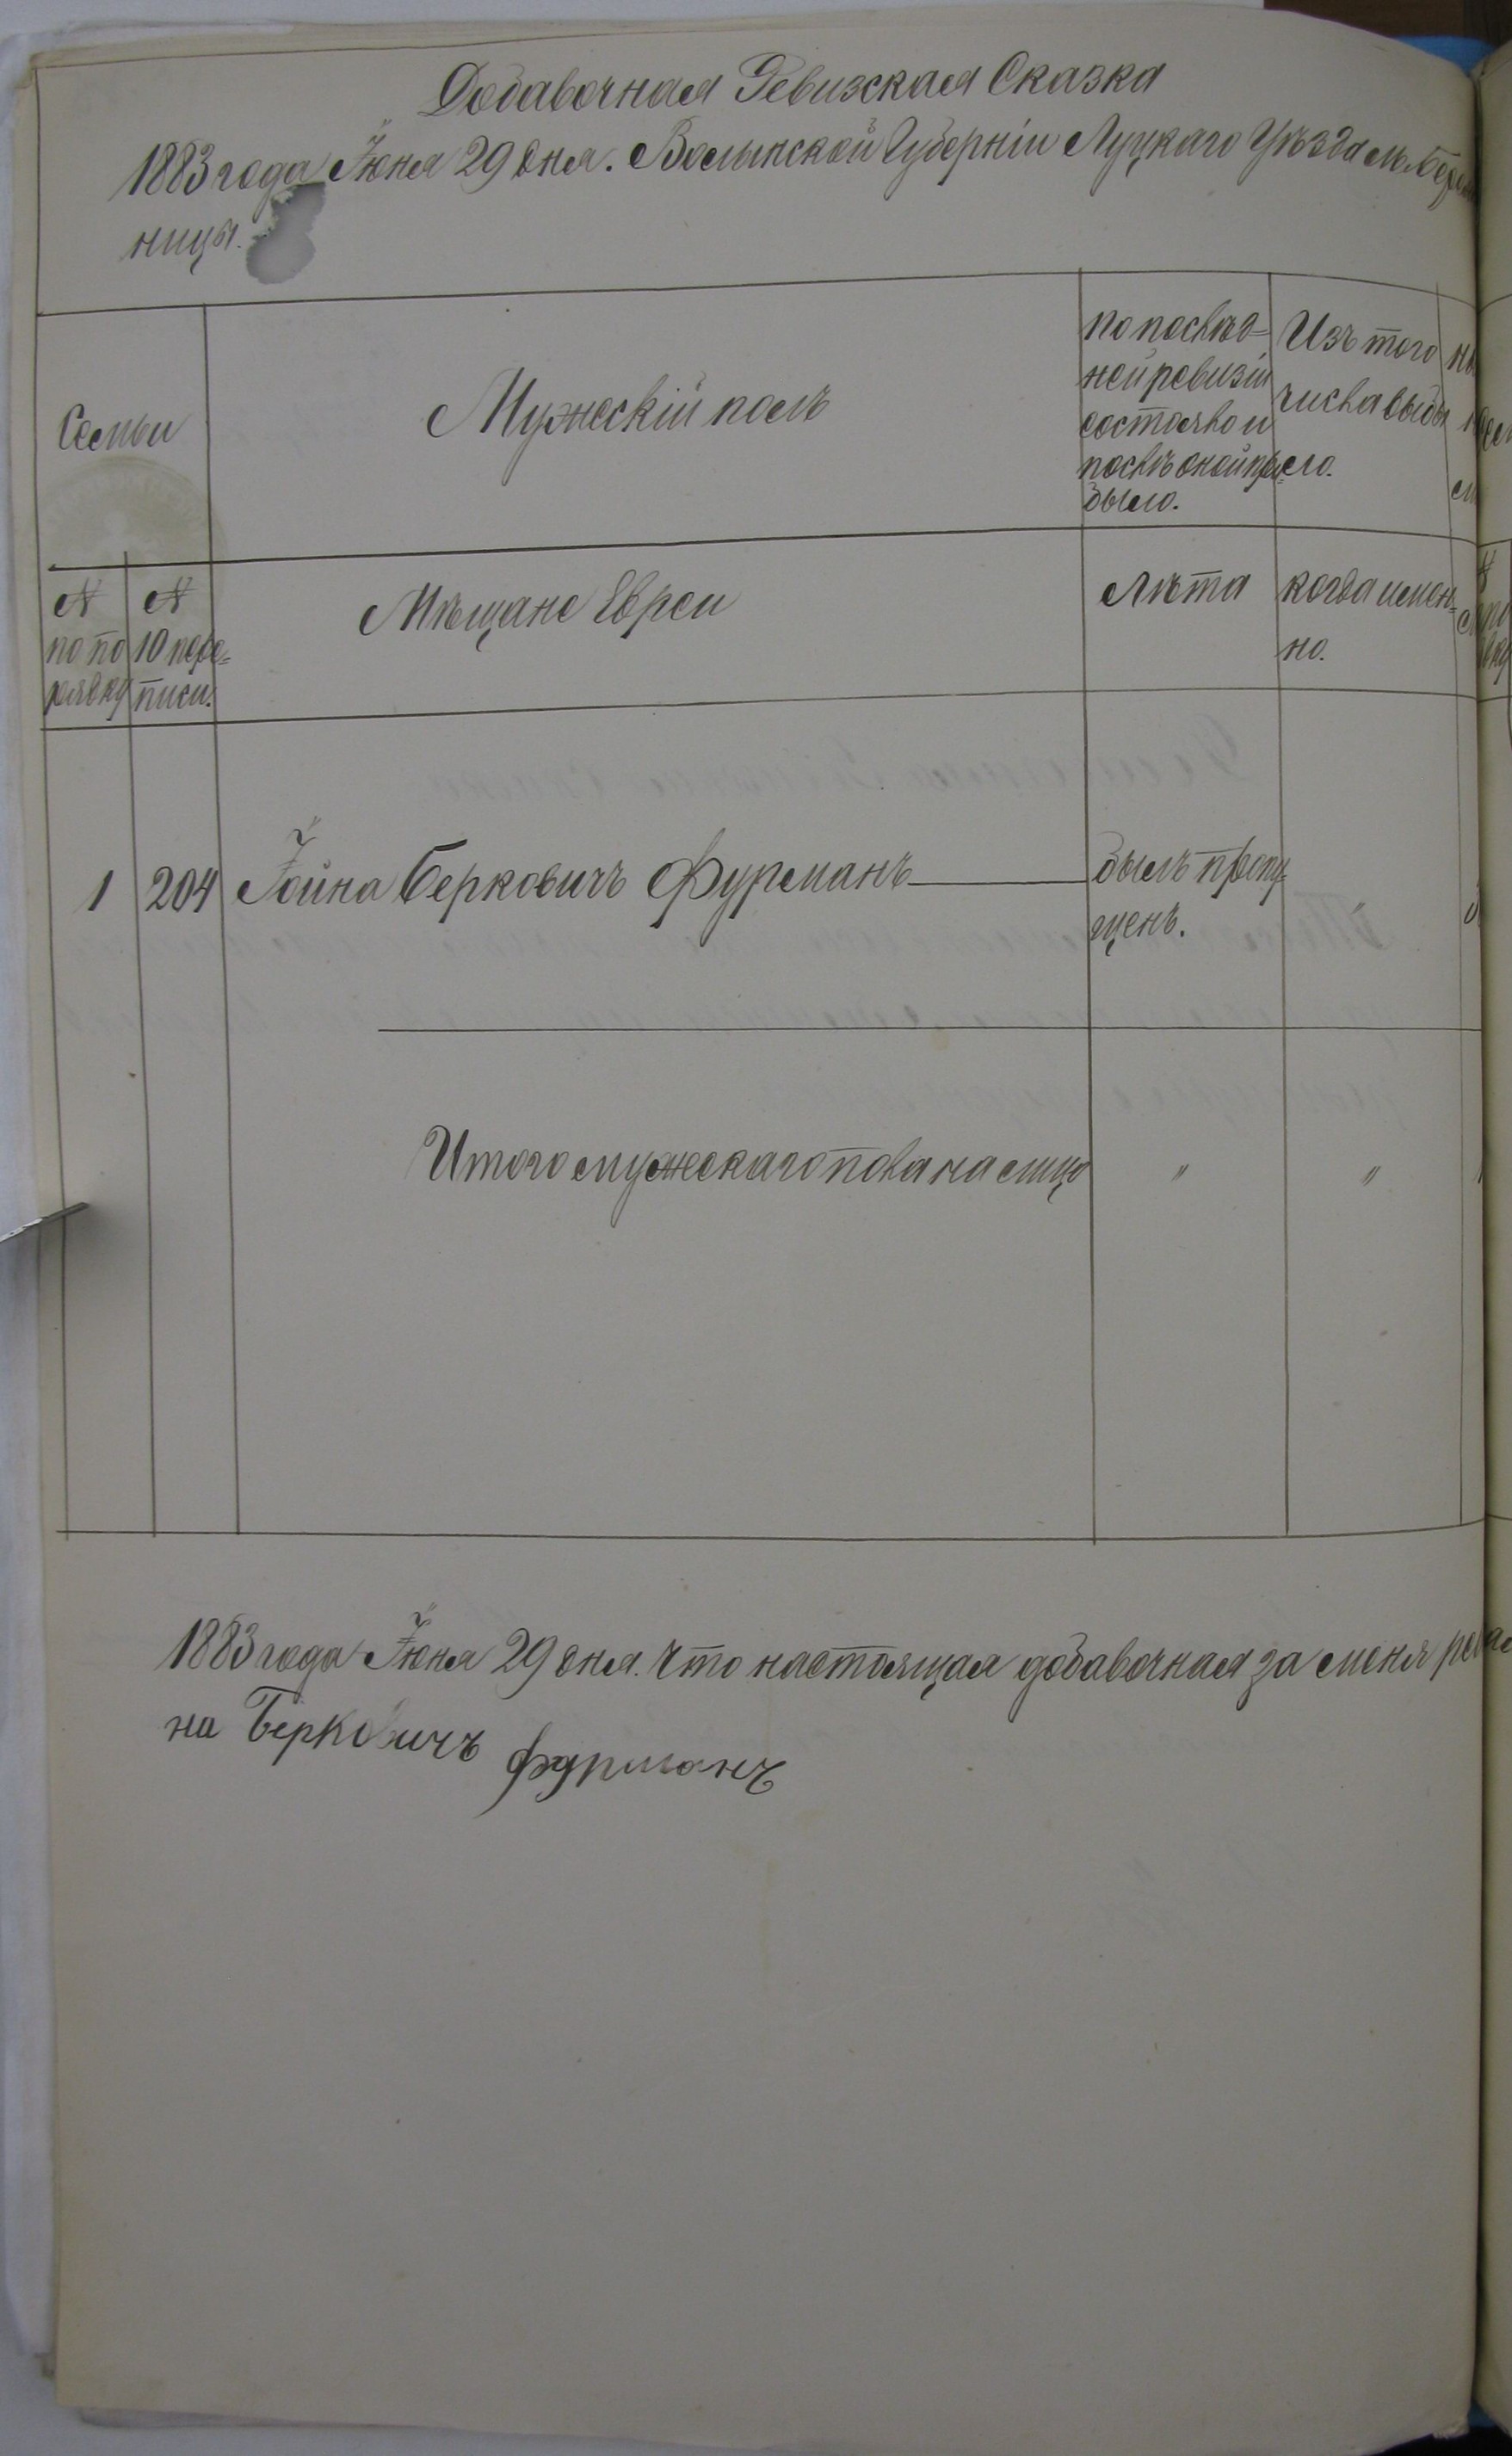 Добавочная Ревизская Сказка
1883 года Іюня 29 дня. Волынской Губерніи Луцкаго Уѣзда м. Бере
ницы.
Семьи
Мужескій полъ
По послѣд=
ней ревизіи
состояло и
послѣ оной при=
было.
Изъ того
числа выбы
ло.
№
по по
рядку
№
10 пере=
писи.
Мѣщане Евреи
Лѣта
когда имен=
но.
1
204
Іойна Берковичъ Фурманъ
былъ пропу
щенъ.
Итого мужескаго пола на лицо
"
"
1883 года Іюня 29 дня. Что настоящая добавочная за меня
на Берковичъ Фурманъ